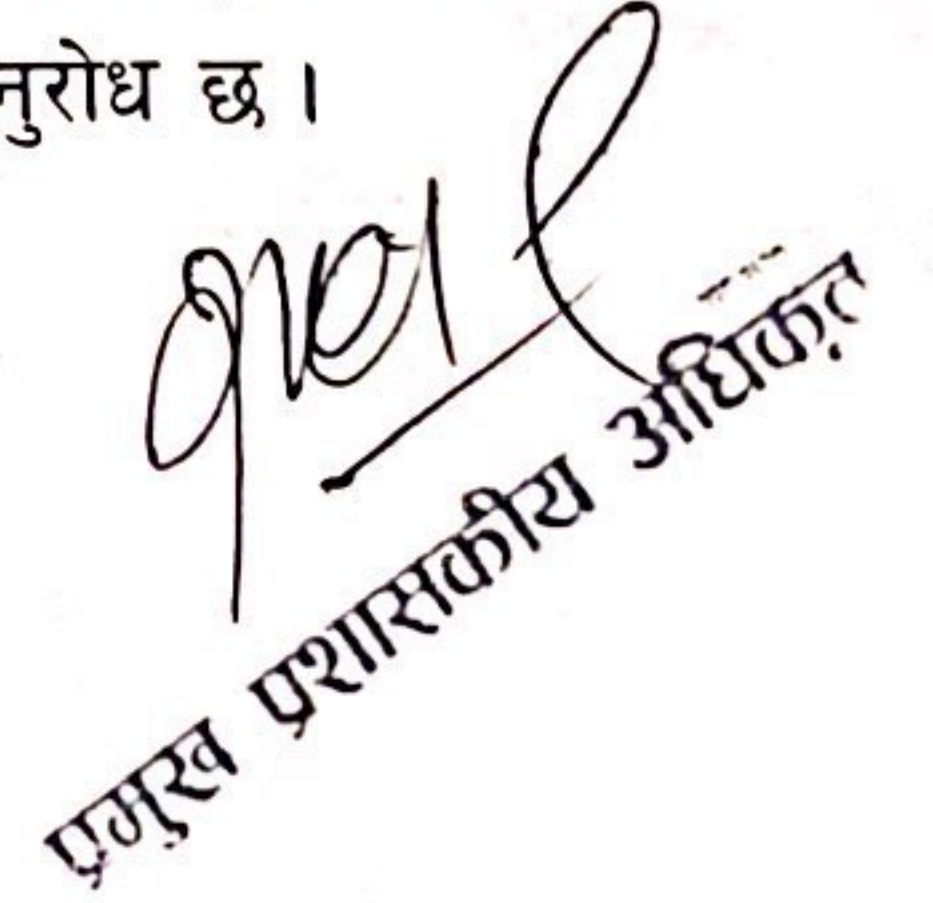 नुरोध छ ।
प्रमुख प्रशासकीय अधिकृत